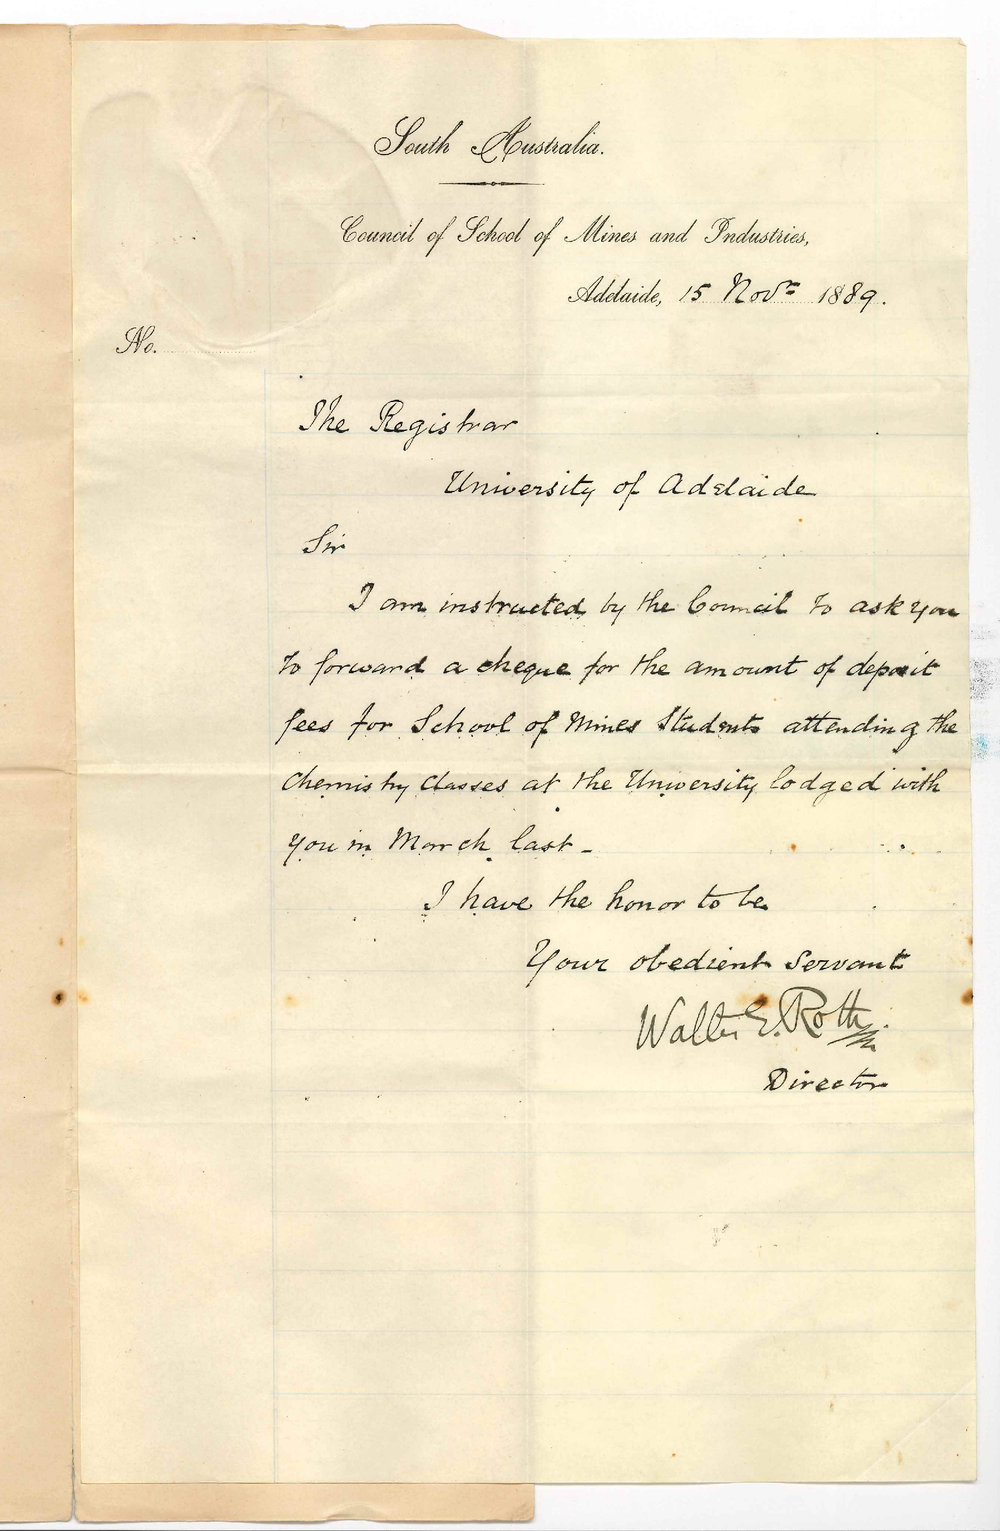 South Australia.
Council of School of Mines and Industries,
Adelaide, 15 Novr 1889.
No.
The Registrar
University of Adelaide
Sir
I am instructed by the Council to ask you
to forward a cheque for the amount of deposit
fees for School of Mines Students attending the
Chemistry Classes at the University lodged with
you in March last -
I have the honor to be
Your obedient servant
Walter E. Roth
Director